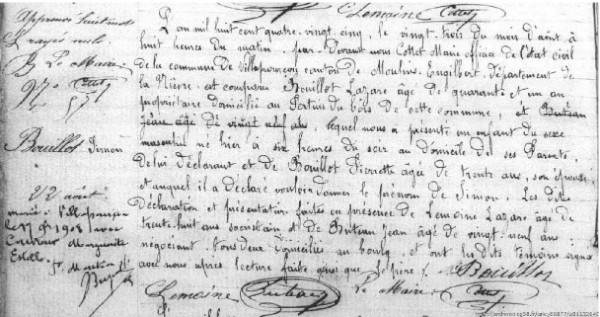 Lemoine Cottet
Approuvé huit mots
rayés nuls
Le Maire
Cottet
Bouillot Simon
22 août
marié à Villapourçon
le 1908 avec
Marguerite
L'an mil huit cent quatre-vingt-cinq, le vingt-trois du mois d'août à
huit heures du matin, par-devant nous Cottet Maire officier de l'état civil
de la commune de Villapourçon canton de Moulins-Engilbert, département de
la Nièvre, est comparu Bouillot Lazare âgé de quarante et un an
propriétaire domicilié au du bois de cette commune, et Buteau
Jean âgé de vingt neuf ans, lequel nous a présenté un enfant du sexe
masculin né hier à six heures du soir au domicile de ses Parents,
de lui déclarant et de Bouillot Pierrette âgée de trente ans, son épouse
et auquel il a déclaré vouloir donner le prénom de Simon. Les dites
Déclaration et présentation faites en présence de Lemoine Lazare âgé de
trente-huit ans et de Buteau Jean âgé de vingt-neuf ans
négociant tous deux domiciliés au bourg, et ont les dits témoins signé
avec nous après lecture faite ainsi que le père. Bouillot
Lemoine Buteau Le Maire Cottet